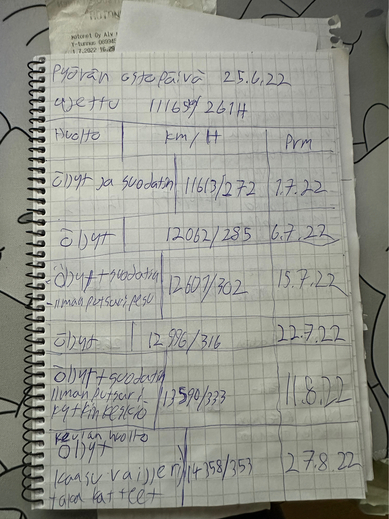 Motoret Oy Alv
Y-tunnus
1.7.2022
Pyörän ostopäivä 25.6.22
ajettu 11169/261H
Huolto km/H Pvm
Öljyt ja suodatin 11613/272 1.7.22
Öljyt 12062/285 6.7.22
-Öljyt+suodatin 12607/302 15.7.22
-ilmanputsari pesu
Öljyt 12996/316 22.7.22
Öljyt+suodatin
ilmanputsari- 13590/333 11.8.22
kytkinkeskiö
keulan huolto
Öljyt 14358/353 27.8.22
kaasu vaijjeri